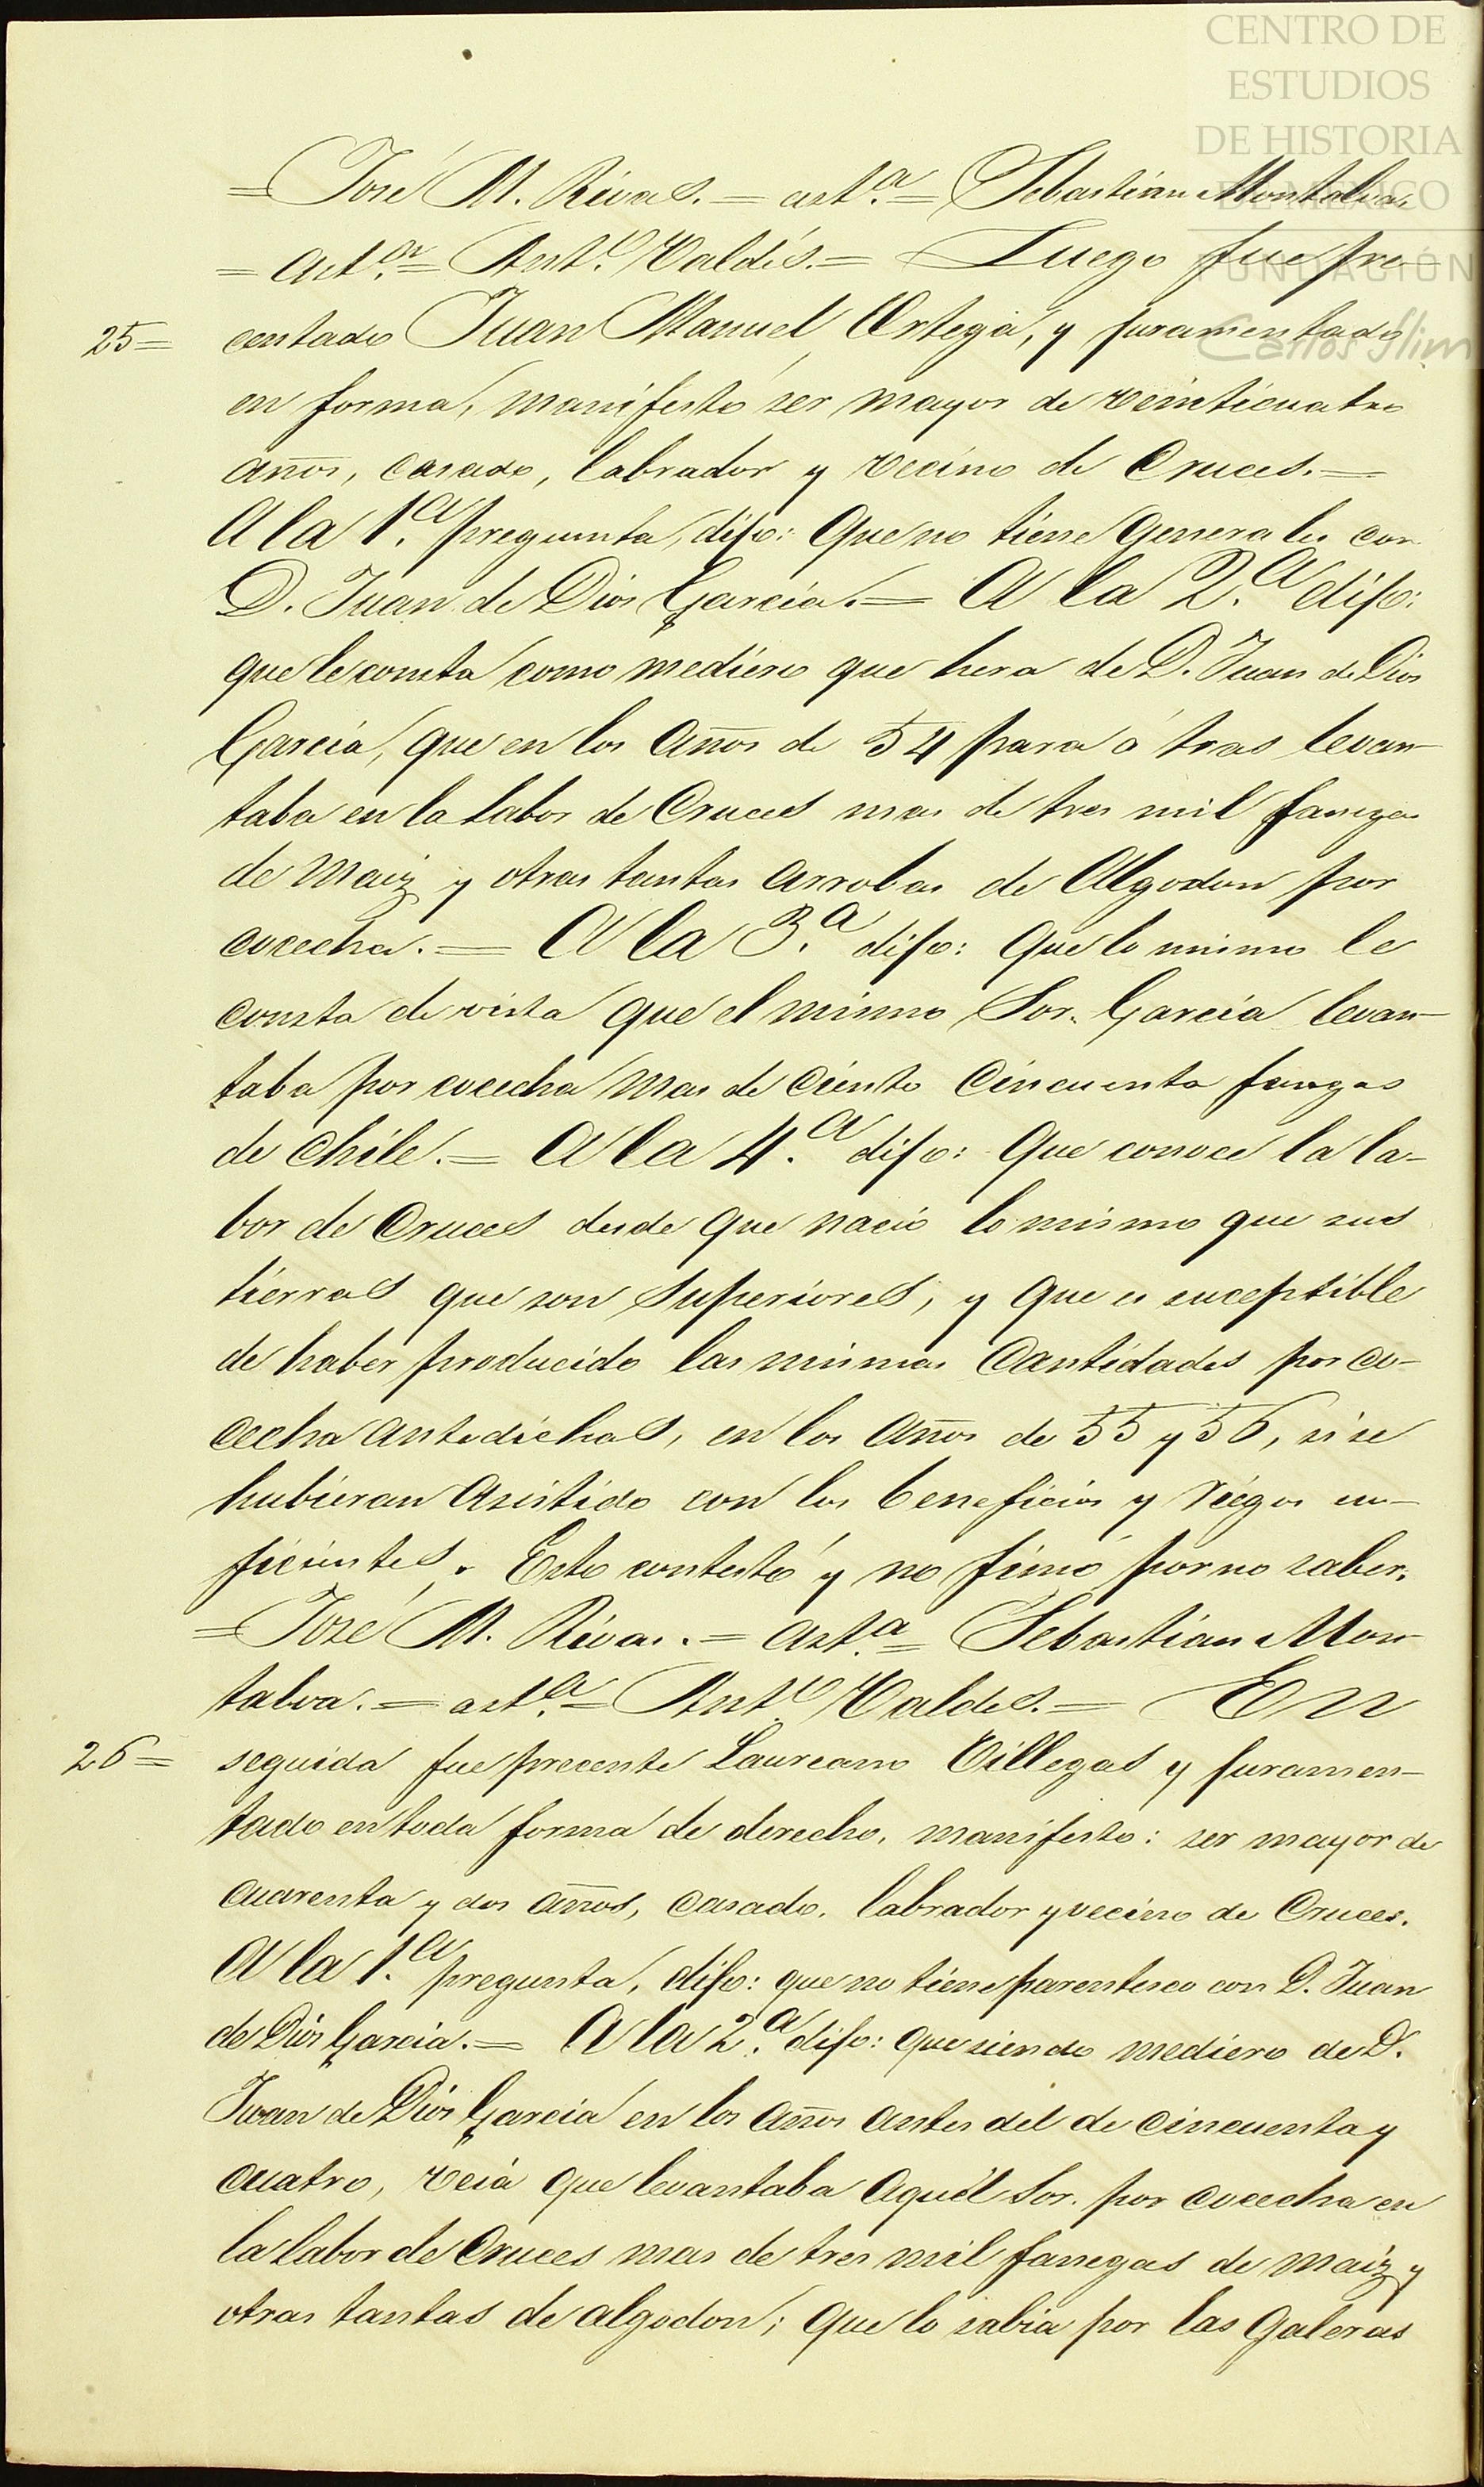 CENTRO DE
ESTUDIOS
DE HISTORIA
DE MÉXICO
FUNDACIÓN
Carlos Slim
= José M. Rivas. = ast.ª = Sebastián Montalva.
= ast.ª = Ant.º Valdés. = Luego fue pre-
25= centado Juan Manuel Ortega, y juramentado
en forma, manifestó ser mayor de veinticuatro
años, casado, labrador y vecino de Cruces. =
A la 1.ª pregunta, dijo: Que no tiene generales con
D. Juan de Dios García. = A la 2.ª dijo:
que le consta como mediero que hera de D. Juan de Dios
García, que en los años de 54 para átras levan-
taba en la labor de Cruces mas de tres mil fanegas
de maiz y otras tantas arrobas de Algodon por
cocecha. = A la 3.ª dijo: Que lo mismo le
consta de vista que el mismo Sor. García levan-
taba por cocecha mas de ciento cincuenta fanegas
de chile. = A la 4.ª dijo: Que conoce la la-
bor de Cruces desde que nació lo mismo que sus
tierras que son superiores, y que es suceptible
de haber producido las mismas cantidades por co-
cecha antedichas, en los años de 55 y 56, si se
hubieran asistido con los beneficios y riegos su-
ficientes. Esto contestó y no firmó por no saber.
= José M. Rivas. = ast.ª = Sebastián Mon-
talva. = ast.ª = Ant.º Valdes. = En
26= seguida fue precente Laureano Villegas y juramen-
tado en toda forma de derecho, manifesto: ser mayor de
cuarenta y dos años, casado, labrador y vecino de Cruces.
A la 1.ª pregunta, dijo: que no tiene parentesco con D. Juan
de Dios García. = A la 2.ª dijo: que siendo mediero de D.
Juan de Dios García en los años antes del de cincuenta y
cuatro, veia que levantaba aquél Sor. por cocecha en
la labor de Cruces mas de tres mil fanegas de maiz y
otras tantas de algodon; que lo sabia por las galeras